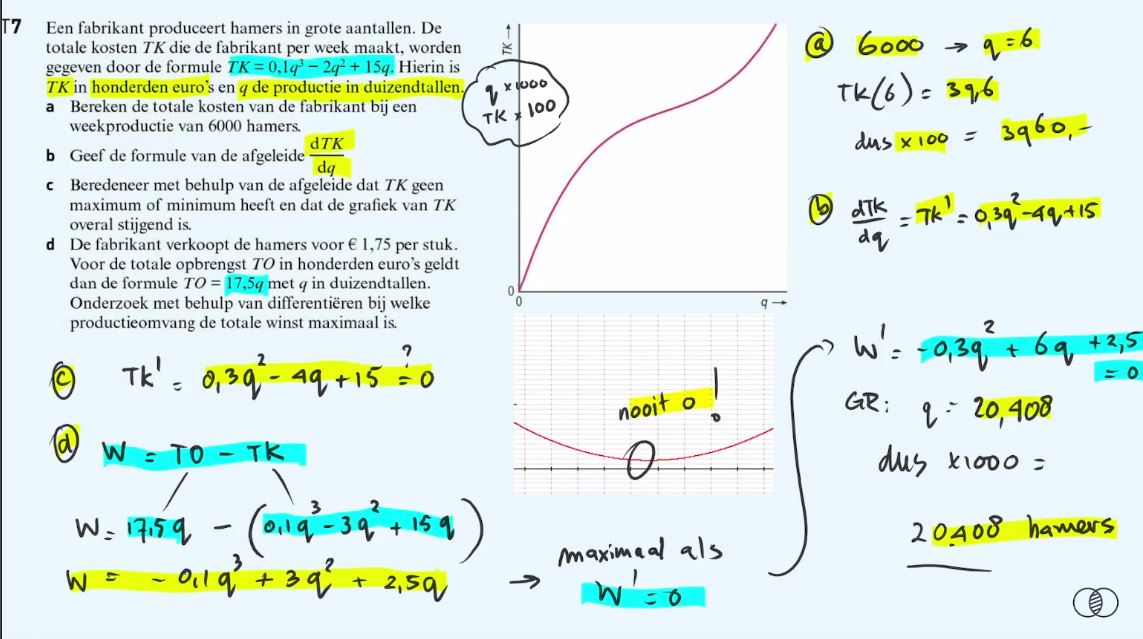 T7 Een fabrikant produceert hamers in grote aantallen. De
totale kosten TK die de fabrikant per week maakt, worden
gegeven door de formule TK = 0,1q³ − 2q² + 15q. Hierin is
TK in honderden euro's en q de productie in duizendtallen.
a Bereken de totale kosten van de fabrikant bij een
weekproductie van 6000 hamers.
b Geef de formule van de afgeleide dTK/dq
c Beredeneer met behulp van de afgeleide dat TK geen
maximum of minimum heeft en dat de grafiek van TK
overal stijgend is.
d De fabrikant verkoopt de hamers voor € 1,75 per stuk.
Voor de totale opbrengst TO in honderden euro's geldt
dan de formule TO = 17,5q met q in duizendtallen.
Onderzoek met behulp van differentiëren bij welke
productieomvang de totale winst maximaal is.
TK →
q x 1000
TK x 100
0
0
q →
a 6000 → q = 6
TK(6) = 39,6
dus x 100 = 3960,-
b dTK/dq = TK' = 0,3q² - 4q + 15
c TK' = 0,3q² - 4q + 15 ?= 0
nooit 0!
d W = TO - TK
W = 17,5q - (0,1q³ - 3q² + 15q)
W = - 0,1q³ + 3q² + 2,5q
→ maximaal als
W' = 0
W' = -0,3q² + 6q + 2,5
= 0
GR: q = 20,408
dus x1000 =
20.408 hamers